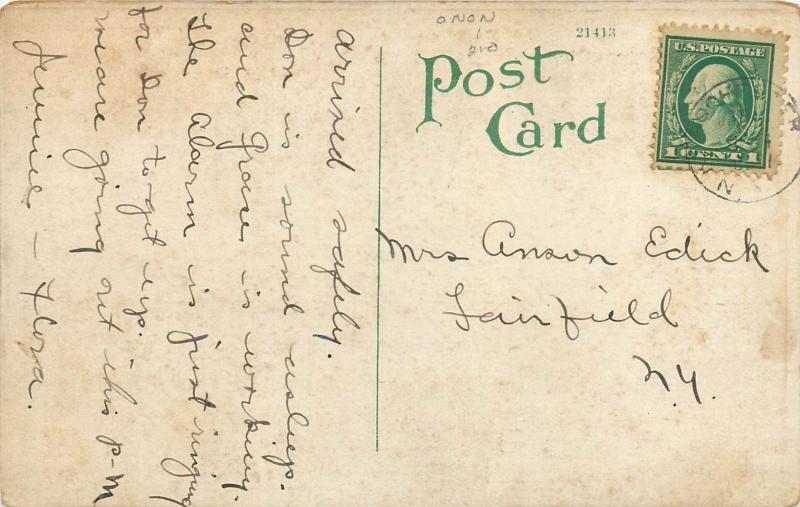 arrived safely.
Don is sound asleep.
and Grace is working.
The alarm is just ringing
for Don to get up.
we are going out this P-M
Jennie - Flora.
ONON
1
21413
Post
Card
U.S. POSTAGE
1 CENT 1
Mrs Anson Edick
Fairfield
N.Y.